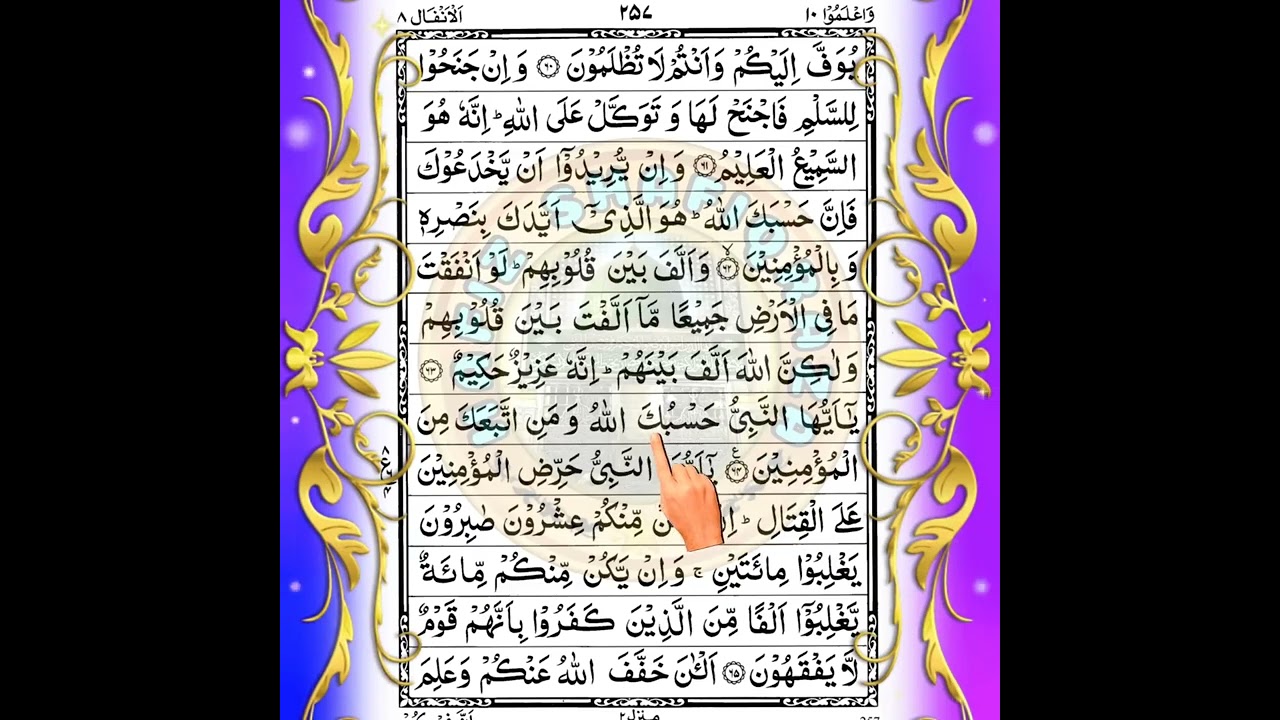 وَاعْلَمُوْا ۱۰ ۲۵۷ اَلْاَنْفَال ۸
يُوَفَّ اِلَيْكُمْ وَاَنْتُمْ لَا تُظْلَمُوْنَ ﴿۶۰﴾ وَ اِنْ جَنَحُوْا
لِلسَّلْمِ فَاجْنَحْ لَهَا وَ تَوَكَّلْ عَلَى اللّٰهِ ؕ اِنَّهٗ هُوَ
السَّمِيْعُ الْعَلِيْمُ ﴿۶۱﴾ وَ اِنْ يُّرِيْدُوْۤا اَنْ يَّخْدَعُوْكَ
فَاِنَّ حَسْبَكَ اللّٰهُ ؕ هُوَ الَّذِيْۤ اَيَّدَكَ بِنَصْرِهٖ
وَ بِالْمُؤْمِنِيْنَ ﴿۶۲﴾ۙ وَ اَلَّفَ بَيْنَ قُلُوْبِهِمْ ؕ لَوْ اَنْفَقْتَ
مَا فِي الْاَرْضِ جَمِيْعًا مَّاۤ اَلَّفْتَ بَيْنَ قُلُوْبِهِمْ
وَلٰكِنَّ اللّٰهَ اَلَّفَ بَيْنَهُمْ ؕ اِنَّهٗ عَزِيْزٌ حَكِيْمٌ ﴿۶۳﴾
يٰۤاَيُّهَا النَّبِيُّ حَسْبُكَ اللّٰهُ وَ مَنِ اتَّبَعَكَ مِنَ
الْمُؤْمِنِيْنَ ﴿۶۴﴾ؑ يٰۤاَيُّهَا النَّبِيُّ حَرِّضِ الْمُؤْمِنِيْنَ
عَلَى الْقِتَالِ ؕ اِنْ مِّنْكُمْ عِشْرُوْنَ صٰبِرُوْنَ
يَغْلِبُوْا مِائَتَيْنِ ۚ وَ اِنْ يَّكُنْ مِّنْكُمْ مِّائَةٌ
يَّغْلِبُوْۤا اَلْفًا مِّنَ الَّذِيْنَ كَفَرُوْا بِاَنَّهُمْ قَوْمٌ
لَّا يَفْقَهُوْنَ ﴿۶۵﴾ اَلْـٰٔنَ خَفَّفَ اللّٰهُ عَنْكُمْ وَعَلِمَ
منزل۲